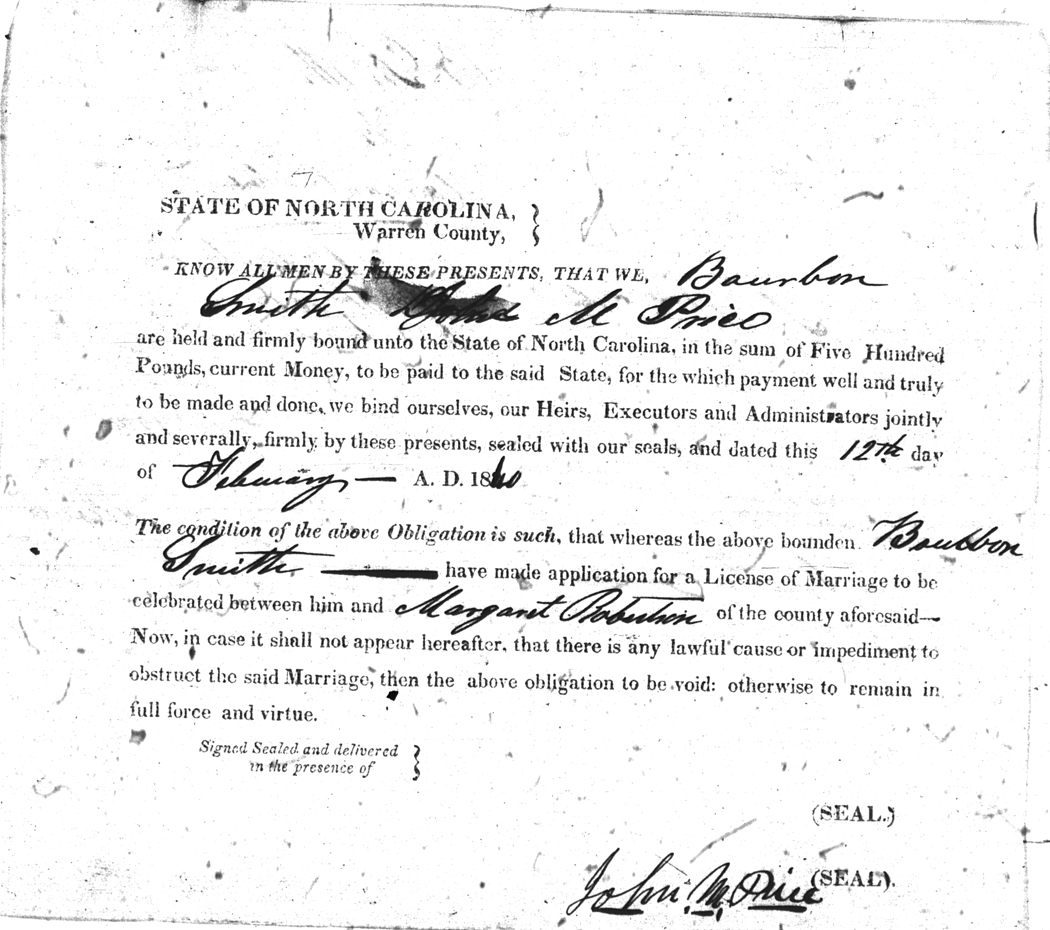 STATE OF NORTH CAROLINA,
Warren County,
KNOW ALL MEN BY THESE PRESENTS, THAT WE, Bourbon
Smith John M Price
are held and firmly bound unto the State of North Carolina, in the sum of Five Hundred
Pounds, current Money, to be paid to the said State, for the which payment well and truly
to be made and done, we bind ourselves, our Heirs, Executors and Administrators jointly
and severally, firmly by these presents, sealed with our seals, and dated this 12th day
of February — A. D. 1840
The condition of the above Obligation is such, that whereas the above bounden Bourbon
Smith — have made application for a License of Marriage to be
celebrated between him and Margaret Robertson of the county aforesaid—
Now, in case it shall not appear hereafter, that there is any lawful cause or impediment to
obstruct the said Marriage, then the above obligation to be void: otherwise to remain in
full force and virtue.
Signed Sealed and delivered
in the presence of
(SEAL.)
John M. Price (SEAL).